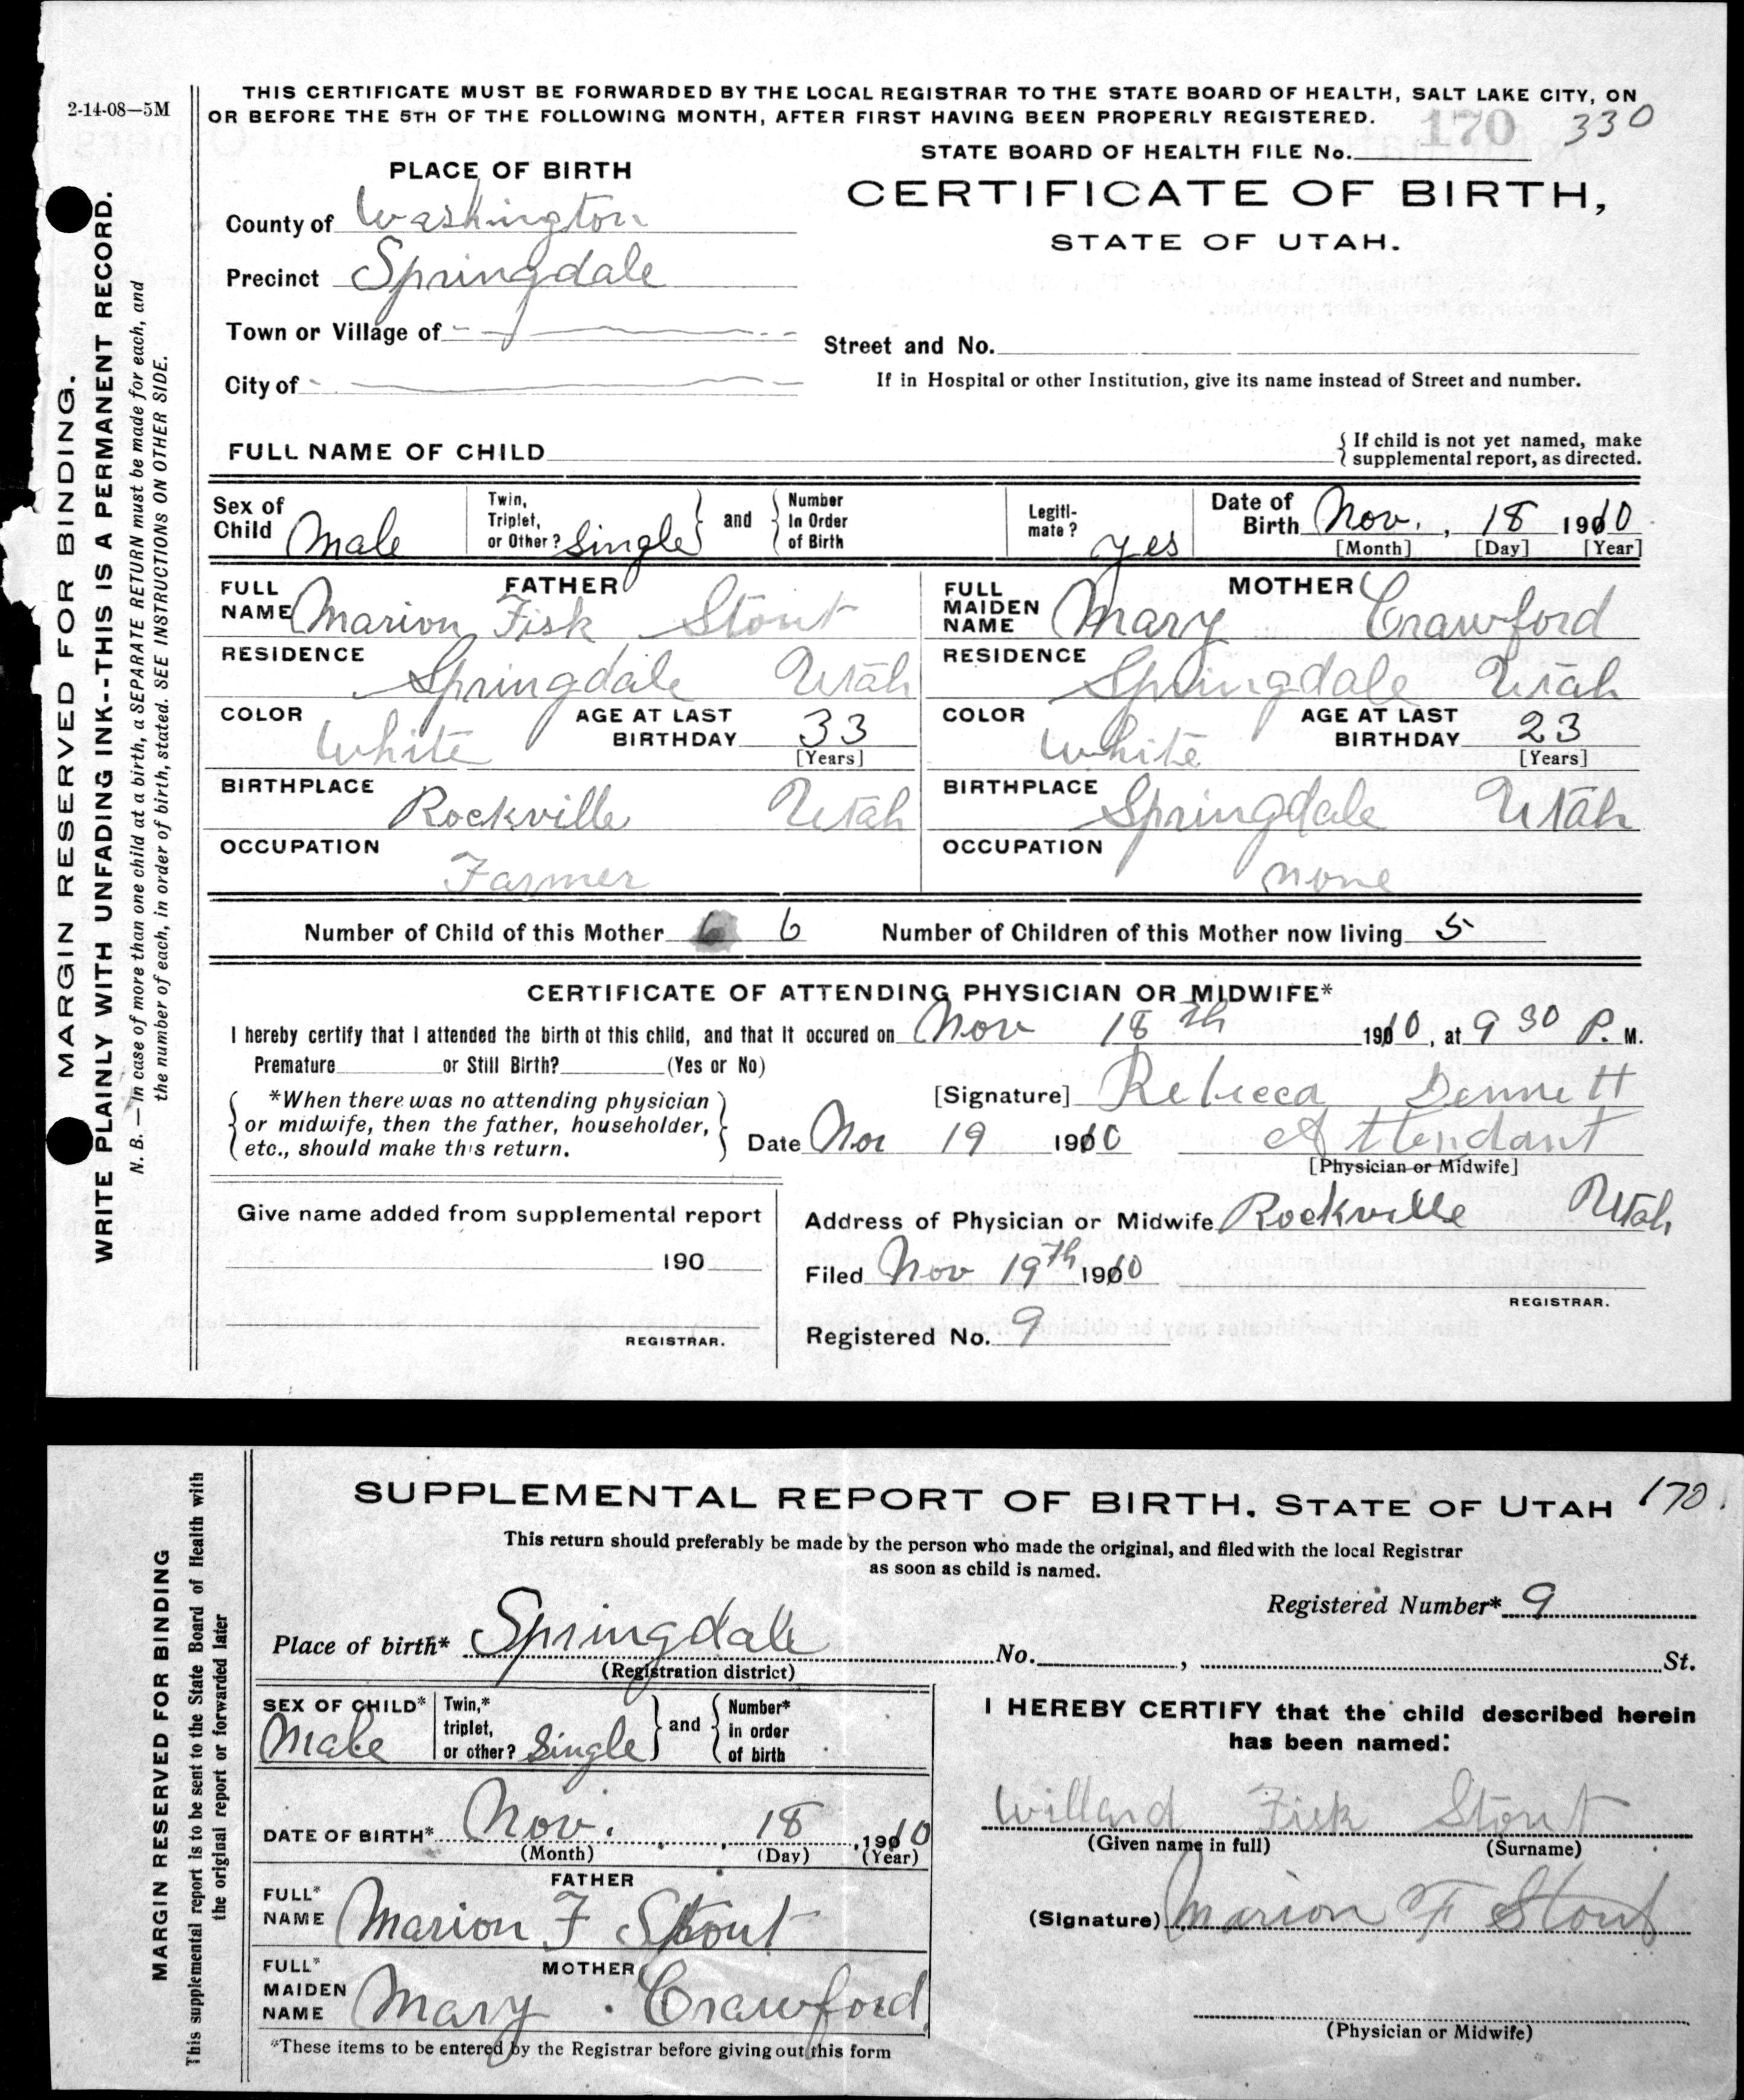 2-14-08—5M
THIS CERTIFICATE MUST BE FORWARDED BY THE LOCAL REGISTRAR TO THE STATE BOARD OF HEALTH, SALT LAKE CITY, ON
OR BEFORE THE 5TH OF THE FOLLOWING MONTH, AFTER FIRST HAVING BEEN PROPERLY REGISTERED.
170 330
STATE BOARD OF HEALTH FILE No.
PLACE OF BIRTH
CERTIFICATE OF BIRTH,
STATE OF UTAH.
County of Washington
Precinct Springdale
Town or Village of
Street and No.
City of
If in Hospital or other Institution, give its name instead of Street and number.
FULL NAME OF CHILD
If child is not yet named, make
supplemental report, as directed.
Sex of Child Male
Twin, Triplet, or Other? Single
and
Number In Order of Birth
Legiti-mate? yes
Date of Birth Nov., 18 1910
[Month] [Day] [Year]
FATHER
FULL NAME Marion Fisk Stout
MOTHER
FULL MAIDEN NAME Mary Crawford
RESIDENCE Springdale Utah
RESIDENCE Springdale Utah
COLOR White AGE AT LAST BIRTHDAY 33 [Years]
COLOR White AGE AT LAST BIRTHDAY 23 [Years]
BIRTHPLACE Rockville Utah
BIRTHPLACE Springdale Utah
OCCUPATION Farmer
OCCUPATION none
Number of Child of this Mother 6 6 Number of Children of this Mother now living 5
CERTIFICATE OF ATTENDING PHYSICIAN OR MIDWIFE*
I hereby certify that I attended the birth of this child, and that it occured on Nov 18th 1910, at 9 30 P. M.
Premature or Still Birth? (Yes or No)
*When there was no attending physician
or midwife, then the father, householder,
etc., should make this return.
[Signature] Rebecca Dennett
Date Nov 19 1910 Attendant
[Physician or Midwife]
Give name added from supplemental report
190
REGISTRAR.
Address of Physician or Midwife Rockville Utah
Filed Nov 19th 1910
REGISTRAR.
Registered No. 9
MARGIN RESERVED FOR BINDING.
WRITE PLAINLY WITH UNFADING INK--THIS IS A PERMANENT RECORD.
N. B.—In case of more than one child at a birth, a SEPARATE RETURN must be made for each, and
the number of each, in order of birth, stated. SEE INSTRUCTIONS ON OTHER SIDE.
SUPPLEMENTAL REPORT OF BIRTH, STATE OF UTAH 170.
This return should preferably be made by the person who made the original, and filed with the local Registrar
as soon as child is named.
Registered Number* 9
Place of birth* Springdale No. , St.
(Registration district)
SEX OF CHILD* Male
Twin,* triplet, or other? Single
and
Number* in order of birth
DATE OF BIRTH* Nov. , 18 , 1910
(Month) (Day) (Year)
FATHER
FULL* NAME Marion F Stout
MOTHER
FULL* MAIDEN NAME Mary Crawford
*These items to be entered by the Registrar before giving out this form
I HEREBY CERTIFY that the child described herein
has been named:
Willard Fisk Stout
(Given name in full) (Surname)
(Signature) Marion F Stout
(Physician or Midwife)
MARGIN RESERVED FOR BINDING
This supplemental report is to be sent to the State Board of Health with
the original report or forwarded later